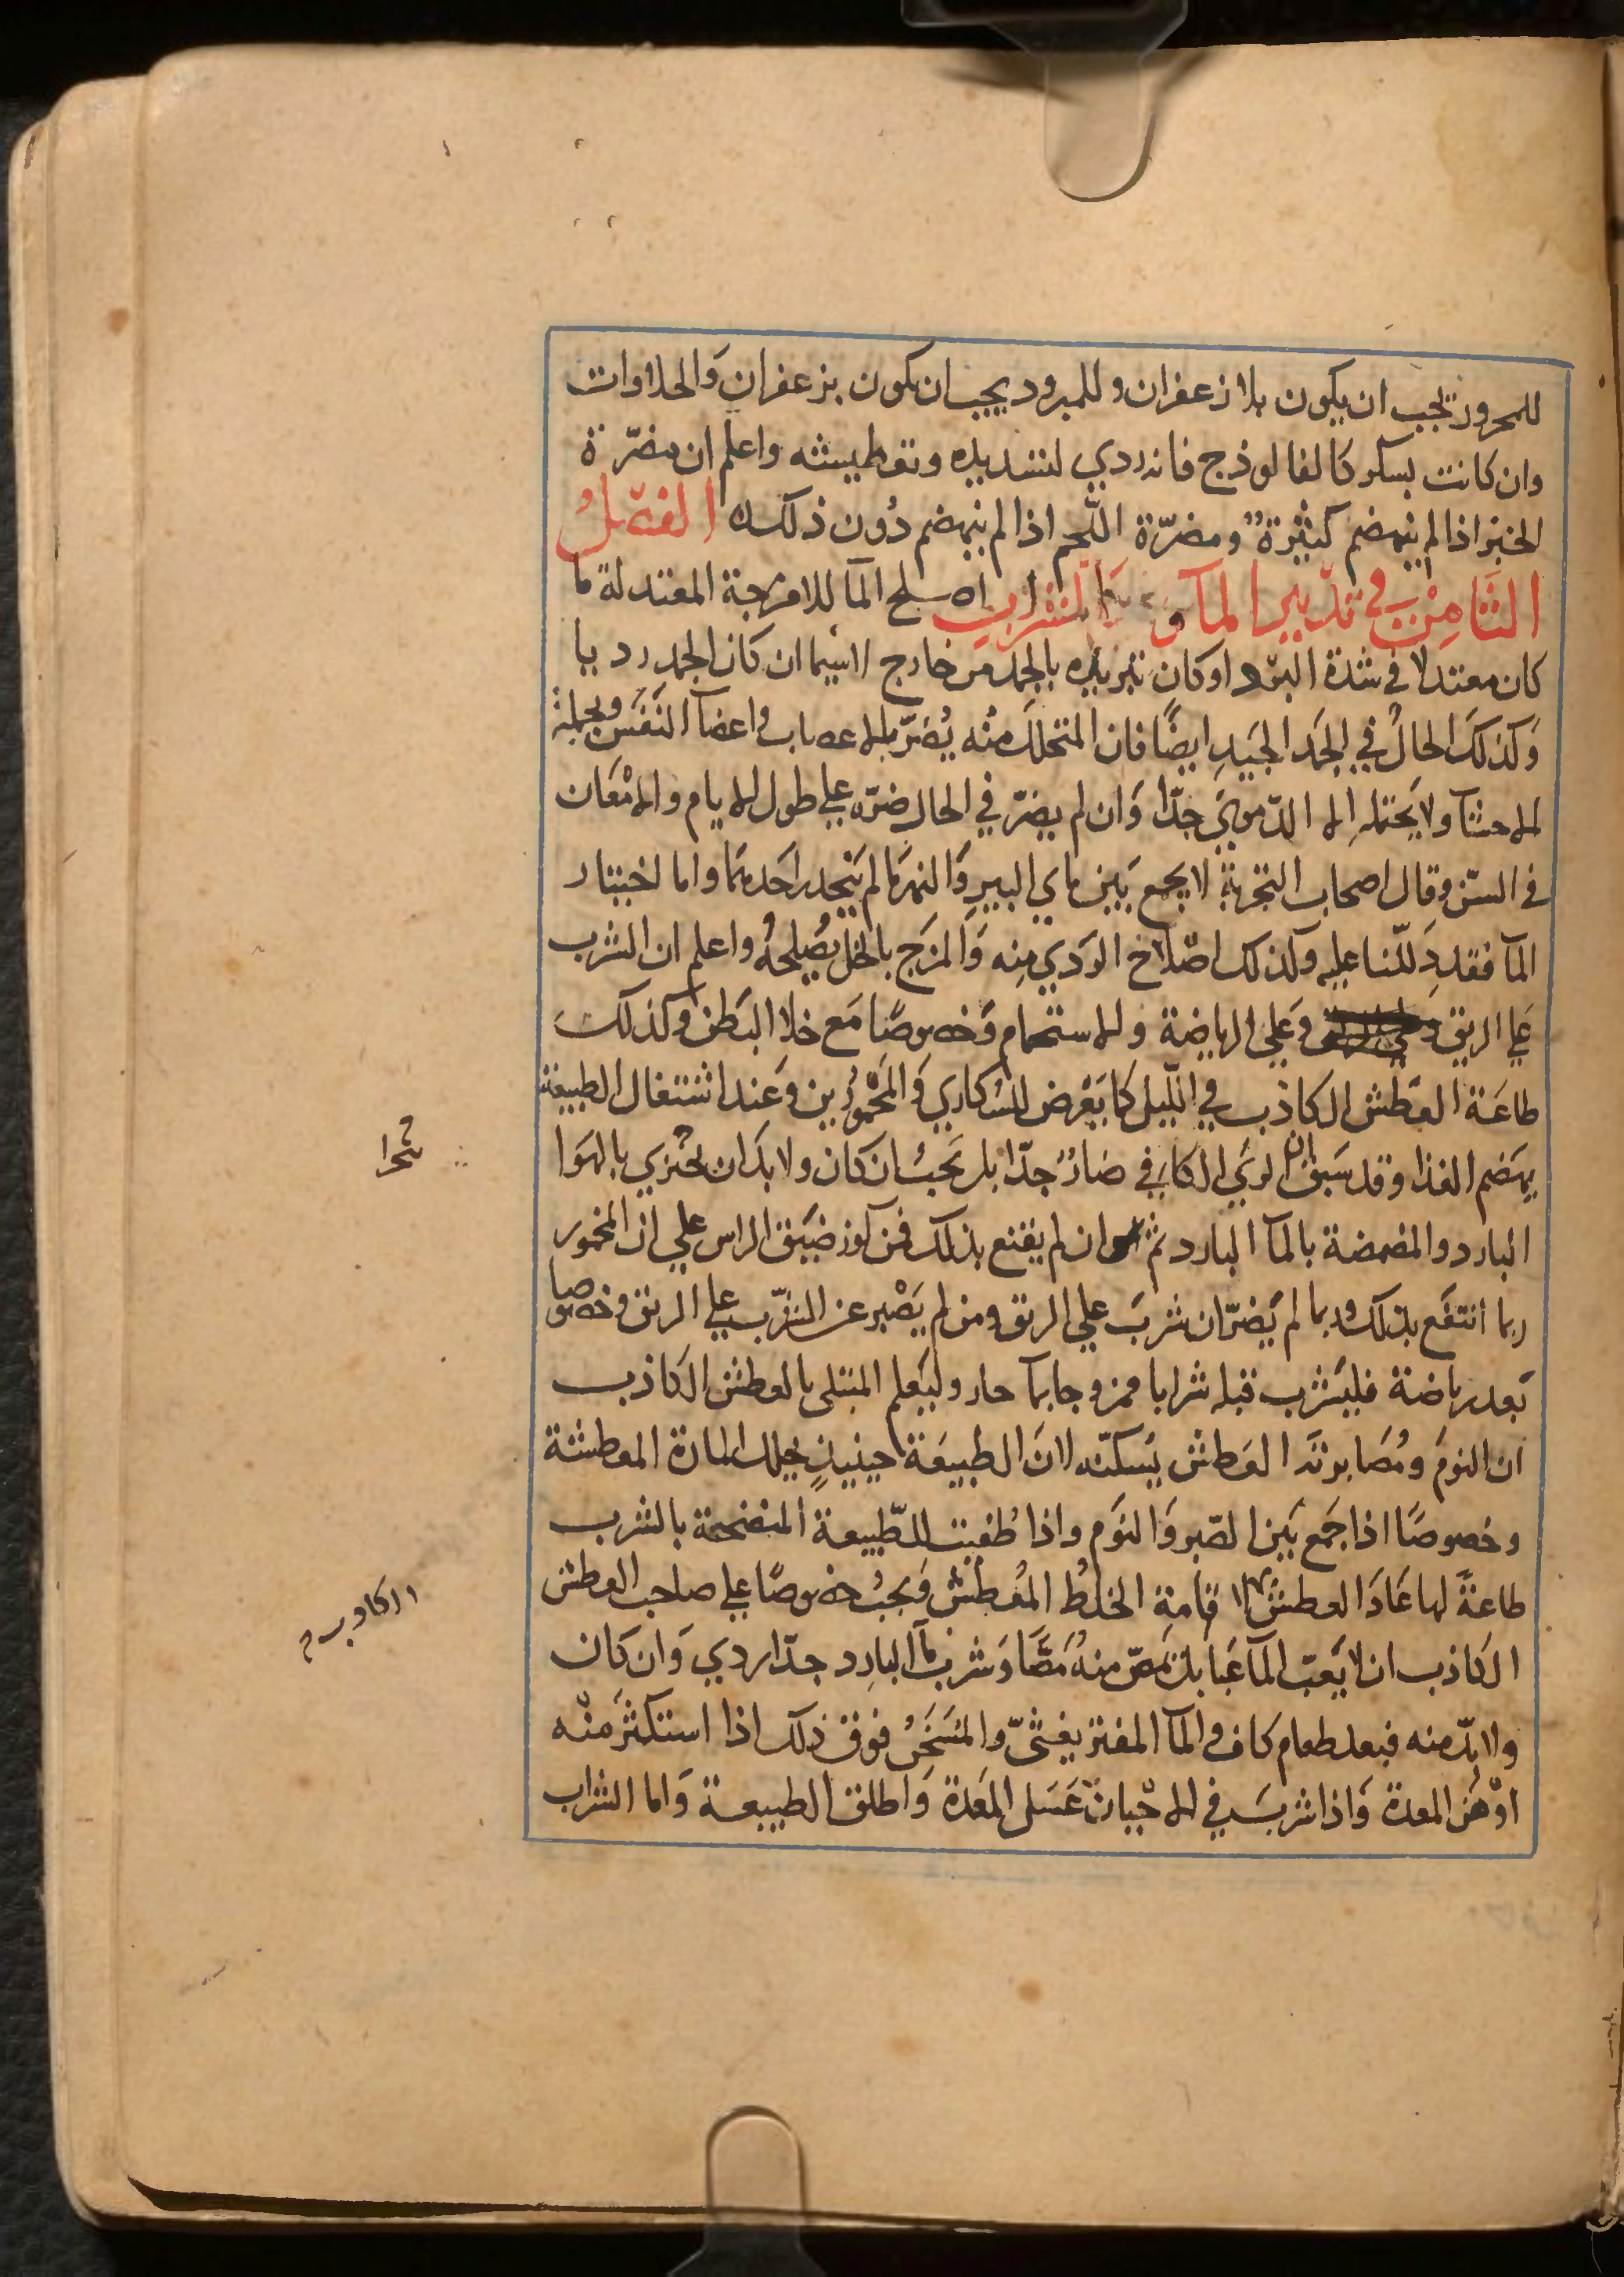 للمحرور يجب ان يكون بلا زعفران وللمبرود يجب ان يكون بزعفران والحلاوات
وان كانت بسكر كالفالوذج فانه ردي لتشديده وتعطيشه واعلم ان مضرّة
الخبز اذا لم ينهضم كثيرةٌ ومضرّة اللّحم اذا لم ينهضم دُون ذلك الفصلُ
الثَّامِنْ في تدبير المآ والشراب اصلح المآ للامزجة المعتدلة ما
كان معتدلا في شدة البرد او كان تبريده بالجمد من خارج لاسيما ان كان الجمد رديا
وَكذلكَ الحالُ في الجمَد الجيَدِ ايضًا فان المتحللَ منْه يُضرّ بالاعصاب واعضآ النَفَس وبجملة
الاحشآ ولا يحتمله الا الدّمويّ جدّا وَان لم يضرّ في الحال ضرّه علي طول الايام والامْعان
في السّن وقال اصحاب التجربة لا يجمع بَين ماي البيرِ وَالنهر مَا لم يَنحدر احَدهمَا واما اختيار
المآ فقد دَللّنا عليه وكذلك اصْلاح الرَدي مِنه وَالمزَج بالخل يُصلحهُ واعلم ان الشرب
عَلي الريق وعَلي الرياضة والاستحمام وَخصوصًا مَع خلا البَطن وكذلك
طاعَة العَطش الكاذب في اللّيل كما يَعْرض للسُكاري وَالمخْمُورين وَعند اشتغال الطبيعة
بهَضم الغذا وقد سَبق ان الري الكافي ضارٌ جدّا بل يَجبُ ان كان ولا بدَ ان يجتزي بالهوَا
البارد والمضمضة بالمآ البارد ثم ان لم يقنع بذلك فمن كوز ضيَق الراس علي ان المخمور
ربما انتفَع بذلك وربما لم يَضرّ ان شربَ علي الريق ومن لم يَصْبر عن الشرّب علي الريق وخصوصا
بَعد رياضة فليشرب قبله شرابا ممزوجا بمآ حار وليَعلم المبتلى بالعطش الكاذب
ان النومَ ومُصَابرَتَه العَطش يُسكنّه لانَ الطبيعَة حينيذٍ تحلل المادة المعطشة
وخصوصًا اذا جمَع بَين الصّبر وَالنَوم واذا طُفيت الطّبيعة المنضجة بالشرب
طاعةً لها عَادَ العطش لاقامةِ الخلطُ المُعطش وَيجبُ خصوصًا علي صاحب العطش
الكاذب ان لا يَعبّ المآ عَبا بل يمصّ منهُ مَصًّا وَشرب المآ البارِد جدّا ردي وَان كان
ولا بدّ منه فبعد طعام كاف والمآ المفتر يغثىّ والمسَخَنُ فوق ذلك اذا استكثَر منْه
اوْهَن المعدة وَاذا شربَ في الاحْيان غَسَل المعَدة وَاطلق الطبيعة وَاما الشراب
الكاذب